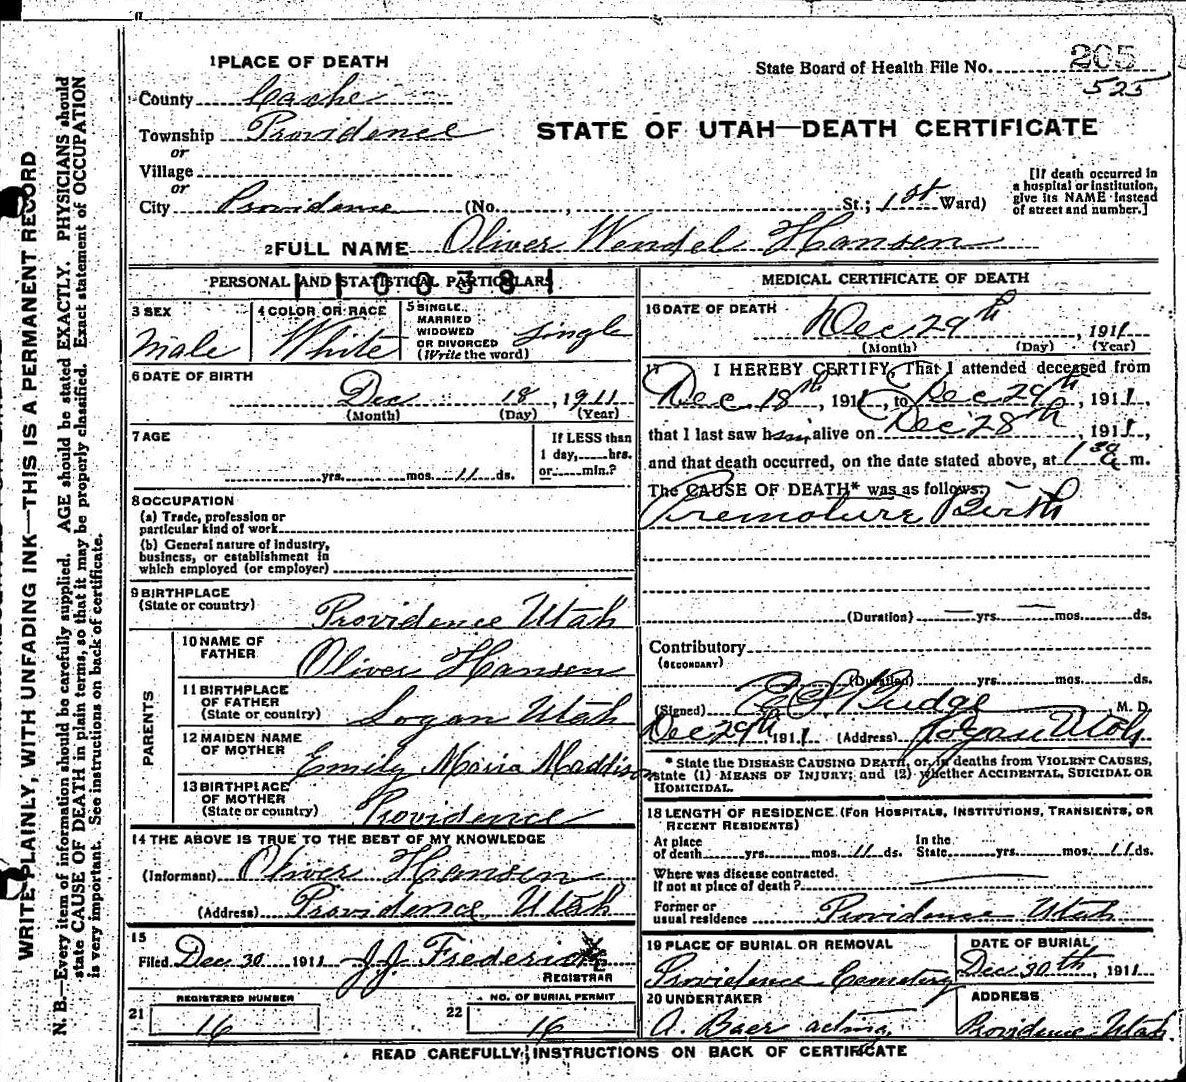 1 PLACE OF DEATH
State Board of Health File No. 205
525
County Cache
Township Providence
or
Village
or
City Providence (No. , St.; 1st Ward)
STATE OF UTAH—DEATH CERTIFICATE
[If death occurred in
a hospital or institution,
give its NAME instead
of street and number.]
2 FULL NAME Oliver Wendel Hansen
PERSONAL AND STATISTICAL PARTICULARS
3 SEX
Male
4 COLOR OR RACE
White
5 SINGLE,
MARRIED
WIDOWED
OR DIVORCED
(Write the word)
Single
6 DATE OF BIRTH
Dec 18, 1911
(Month) (Day) (Year)
7 AGE
yrs. mos. 11 ds.
If LESS than
1 day, hrs.
or min.?
8 OCCUPATION
(a) Trade, profession or
particular kind of work
(b) General nature of industry,
business, or establishment in
which employed (or employer)
9 BIRTHPLACE
(State or country)
Providence Utah
PARENTS
10 NAME OF
FATHER
Oliver Hansen
11 BIRTHPLACE
OF FATHER
(State or country)
Logan Utah
12 MAIDEN NAME
OF MOTHER
Emily Moira Maddison
13 BIRTHPLACE
OF MOTHER
(State or country)
Providence
14 THE ABOVE IS TRUE TO THE BEST OF MY KNOWLEDGE
(Informant) Oliver Hansen
(Address) Providence Utah
15
Filed Dec 30 1911 J.J. Frederick
REGISTRAR
REGISTERED NUMBER
21 16
NO. OF BURIAL PERMIT
22 16
MEDICAL CERTIFICATE OF DEATH
16 DATE OF DEATH
Dec 29th, 1911
(Month) (Day) (Year)
17 I HEREBY CERTIFY, That I attended deceased from
Dec 18th, 1911, to Dec 29th, 1911,
that I last saw him alive on Dec 28th, 1911,
and that death occurred, on the date stated above, at 1 30 a m.
The CAUSE OF DEATH* was as follows:
Premature Birth
(Duration) yrs. mos. ds.
Contributory
(SECONDARY)
(Duration) yrs. mos. ds.
(Signed) Budge M. D.
Dec 29th, 1911 (Address) Logan Utah
* State the DISEASE CAUSING DEATH, or, in deaths from VIOLENT CAUSES,
state (1) MEANS OF INJURY; and (2) whether ACCIDENTAL, SUICIDAL OR
HOMICIDAL.
18 LENGTH OF RESIDENCE (FOR HOSPITALS, INSTITUTIONS, TRANSIENTS, OR
RECENT RESIDENTS)
At place
of death yrs. mos. 11 ds.
In the
State yrs. mos. 11 ds.
Where was disease contracted.
If not at place of death?
Former or
usual residence Providence Utah
19 PLACE OF BURIAL OR REMOVAL
Providence Cemetery
DATE OF BURIAL
Dec 30th, 1911
20 UNDERTAKER
A. Baer acting
ADDRESS
Providence Utah
READ CAREFULLY INSTRUCTIONS ON BACK OF CERTIFICATE
WRITE PLAINLY, WITH UNFADING INK—THIS IS A PERMANENT RECORD
N. B.—Every item of information should be carefully supplied. AGE should be stated EXACTLY. PHYSICIANS should
state CAUSE OF DEATH in plain terms, so that it may be properly classified. Exact statement of OCCUPATION
is very important. See instructions on back of certificate.